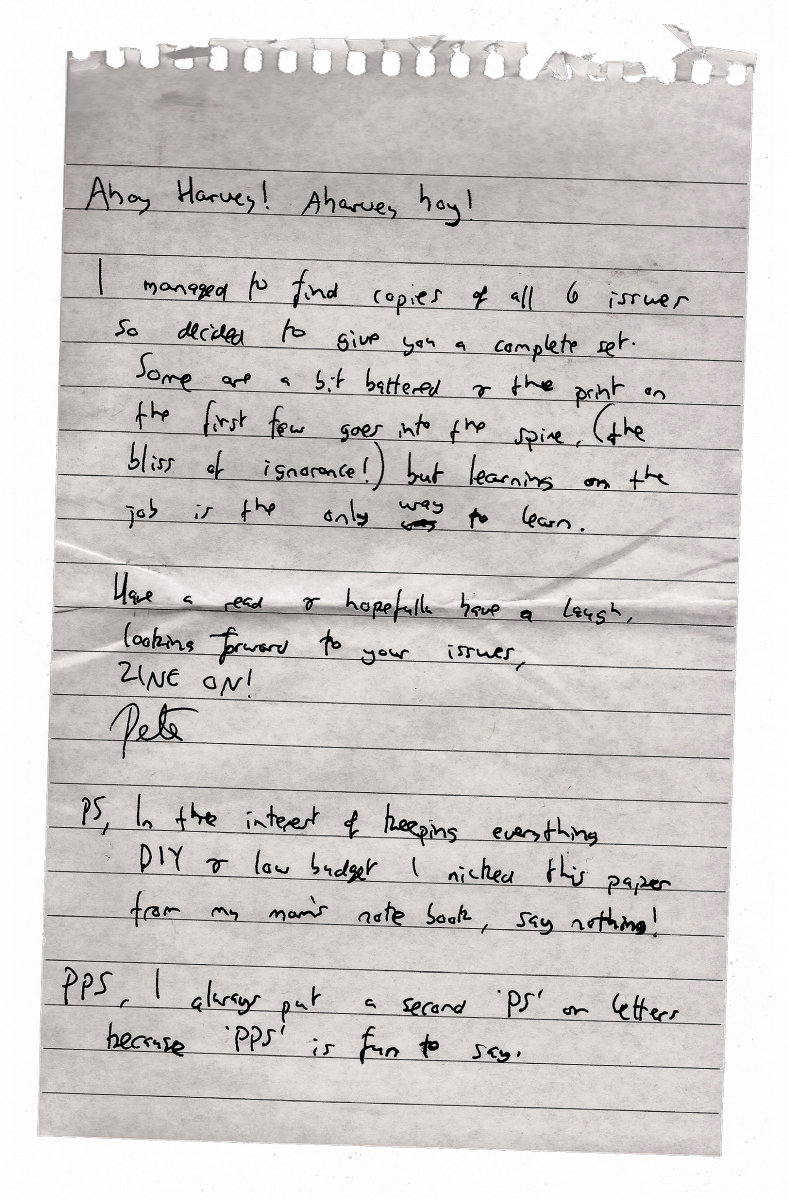 Ahoy Harvey! Aharvey hoy!
I managed to find copies of all 6 issues
so decided to give you a complete set.
Some are a bit battered & the print on
the first few goes into the spine, (the
bliss of ignorance!) but learning on the
job is the only way to learn.
Have a read & hopefully have a laugh,
looking forward to your issues,
ZINE ON!
Pete
PS, In the interest of keeping everything
DIY & low budget I nicked this paper
from my mam's note book, say nothing!
PPS, I always put a second 'PS' on letters
because 'PPS' is fun to say.